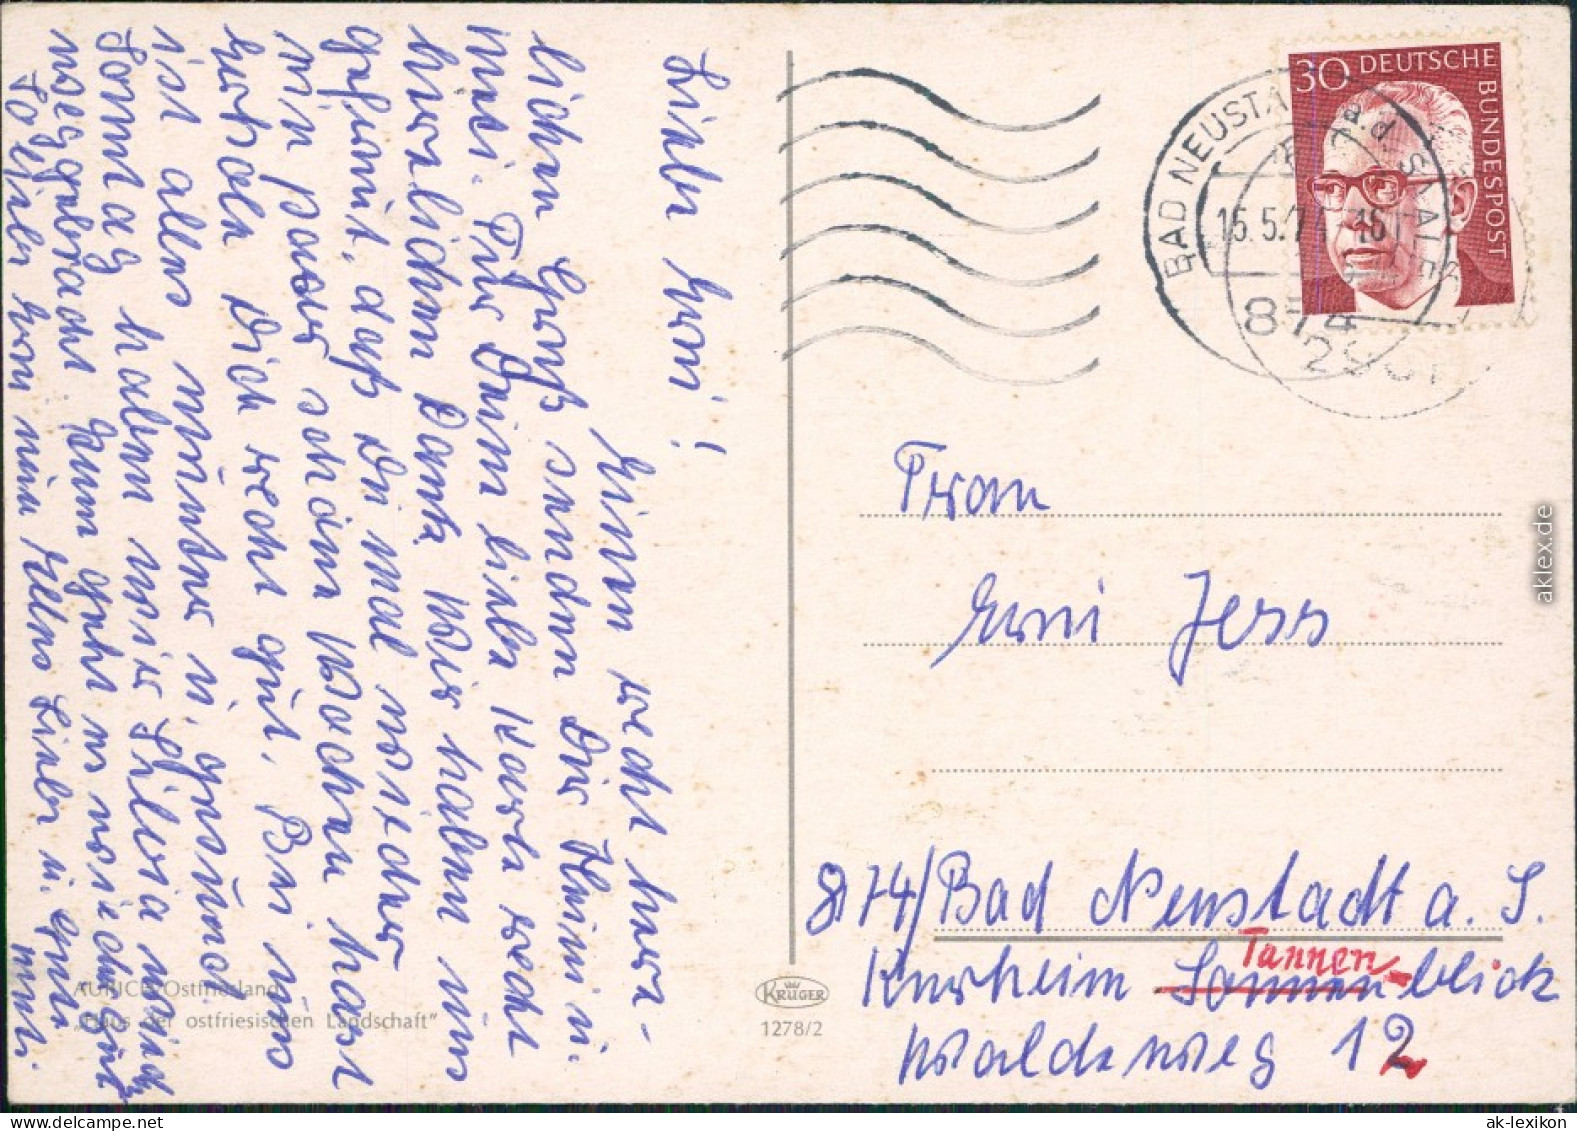 Liebe Erni!
Einen recht herz-
lichen Gruß senden Dir Heini u.
Meti. Für Deine liebe Karte recht
herzlichen Dank Wir haben uns
gefreut, daß Du mal wieder
ein paar schöne Wochen hast
erhole Dich recht gut. Bei uns
ist alles munter u. gesund
Sonntag haben wir Silvia
weggebracht. Nun geht es wieder
So liebe Erni nun alles Liebe u. Gute
Meti.
AURICH/Ostfriesland
„Haus der ostfriesischen Landschaft"
KRÜGER
1278/2
30 DEUTSCHE BUNDESPOST
BAD NEUSTADT a.d. SAALE
15.5.74 -16
874
Frau
Erni Jess
874/Bad Neustadt a. S.
Kurheim Sonnenblick
Tannen-
Waldweg 12
aklex.de
ak-lexikon